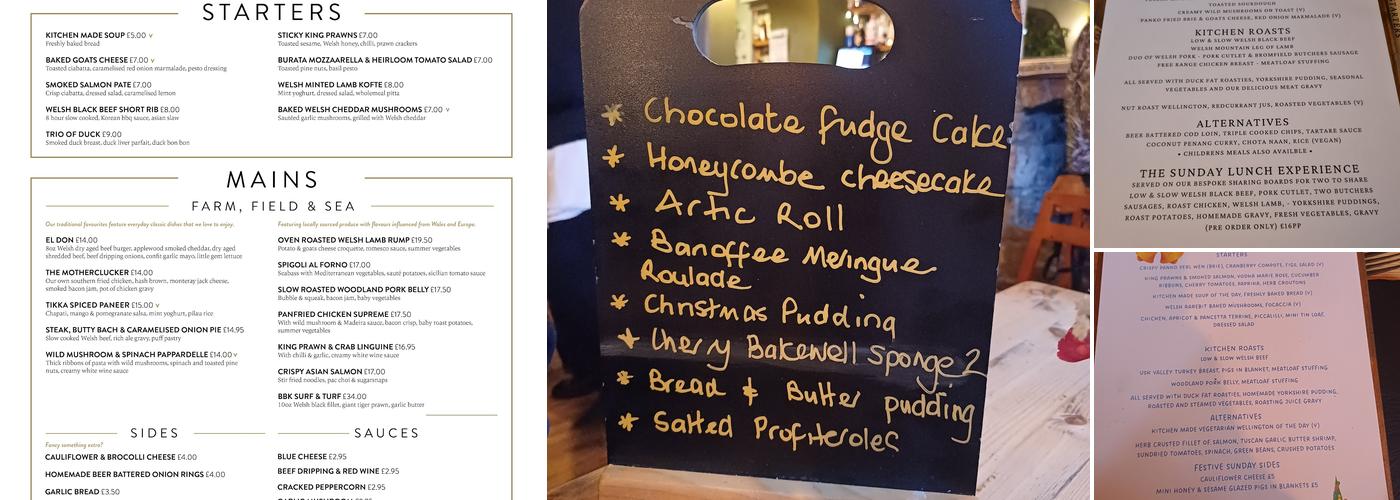 STARTERS
KITCHEN MADE SOUP £5.00 v
Freshly baked bread
BAKED GOATS CHEESE £7.00 v
Toasted ciabatta, caramelised red onion marmalade, pesto dressing
SMOKED SALMON PATE £7.00
Crisp ciabatta, dressed salad, caramelised lemon
WELSH BLACK BEEF SHORT RIB £8.00
8 hour slow cooked, Korean bbq sauce, asian slaw
TRIO OF DUCK £9.00
Smoked duck breast, duck liver parfait, duck bon bon
STICKY KING PRAWNS £7.00
Toasted sesame, Welsh honey, chilli, prawn crackers
BURATA MOZZAARELLA & HEIRLOOM TOMATO SALAD £7.00
Toasted pine nuts, basil pesto
WELSH MINTED LAMB KOFTE £8.00
Mint yoghurt, dressed salad, wholemeal pitta
BAKED WELSH CHEDDAR MUSHROOMS £7.00 v
Sautéed garlic mushrooms, grilled with Welsh cheddar
MAINS
FARM, FIELD & SEA
Our traditional favourites feature everyday classic dishes that we love to enjoy.
EL DON £14.00
8oz Welsh dry aged beef burger, applewood smoked cheddar, dry aged
shredded beef, beef dripping onions, confit garlic mayo, little gem lettuce
THE MOTHERCLUCKER £14.00
Our own southern fried chicken, hash brown, monteray jack cheese,
smoked bacon jam, pot of chicken gravy
TIKKA SPICED PANEER £15.00 v
Chapati, mango & pomegranate salsa, mint yoghurt, pilau rice
STEAK, BUTTY BACH & CARAMELISED ONION PIE £14.95
Slow cooked Welsh beef, rich ale gravy, puff pastry
WILD MUSHROOM & SPINACH PAPPARDELLE £14.00 v
Thick ribbons of pasta with wild mushrooms, spinach and toasted pine
nuts, creamy white wine sauce
Featuring locally sourced produce with flavours influenced from Wales and Europe.
OVEN ROASTED WELSH LAMB RUMP £19.50
Potato & goats cheese croquette, romesco sauce, summer vegetables
SPIGOLI AL FORNO £17.00
Seabass with Mediterranean vegetables, sauté potatoes, sicilian tomato sauce
SLOW ROASTED WOODLAND PORK BELLY £17.50
Bubble & squeak, bacon jam, baby vegetables
PANFRIED CHICKEN SUPREME £17.50
With wild mushroom & Madeira sauce, bacon crisp, baby roast potatoes,
summer vegetables
KING PRAWN & CRAB LINGUINE £16.95
With chilli & garlic, creamy white wine sauce
CRISPY ASIAN SALMON £17.00
Stir fried noodles, pac choi & sugarsnaps
BBK SURF & TURF £34.00
10oz Welsh black fillet, giant tiger prawn, garlic butter
SIDES
Fancy something extra?
CAULIFLOWER & BROCOLLI CHEESE £4.00
HOMEMADE BEER BATTERED ONION RINGS £4.00
GARLIC BREAD £3.50
SAUCES
BLUE CHEESE £2.95
BEEF DRIPPING & RED WINE £2.95
CRACKED PEPPERCORN £2.95
* Chocolate fudge Cake
* Honeycombe cheesecake
* Artic Roll
* Banoffee Meringue
Roulade
* Christmas Pudding
* Cherry Bakewell Sponge
* Bread & Butter pudding
* Salted Profiteroles
TOASTED SOURDOUGH
CREAMY WILD MUSHROOMS ON TOAST (V)
PANKO FRIED BRIE & GOATS CHEESE, RED ONION MARMALADE (V)
KITCHEN ROASTS
LOW & SLOW WELSH BLACK BEEF
WELSH MOUNTAIN LEG OF LAMB
DUO OF WELSH PORK - PORK CUTLET & BROMFIELD BUTCHERS SAUSAGE
FREE RANGE CHICKEN BREAST - MEATLOAF STUFFING
ALL SERVED WITH DUCK FAT ROASTIES, YORKSHIRE PUDDING, SEASONAL
VEGETABLES AND OUR DELICIOUS MEAT GRAVY
NUT ROAST WELLINGTON, REDCURRANT JUS, ROASTED VEGETABLES (V)
ALTERNATIVES
BEER BATTERED COD LOIN, TRIPLE COOKED CHIPS, TARTARE SAUCE
COCONUT PENANG CURRY, CHOTA NAAN, RICE (VEGAN)
• CHILDRENS MEALS ALSO AVAILBLE •
THE SUNDAY LUNCH EXPERIENCE
SERVED ON OUR BESPOKE SHARING BOARDS FOR TWO TO SHARE
LOW & SLOW WELSH BLACK BEEF, PORK CUTLET, TWO BUTCHERS
SAUSAGES, ROAST CHICKEN, WELSH LAMB, - YORKSHIRE PUDDINGS,
ROAST POTATOES, HOMEMADE GRAVY, FRESH VEGETABLES, GRAVY
(PRE ORDER ONLY) £16PP
STARTERS
CRISPY PANKO PERL WEN (BRIE), CRANBERRY COMPOTE, FIGS, SALAD (V)
KING PRAWNS & SMOKED SALMON, VODKA MARIE ROSE, CUCUMBER
RIBBONS, CHERRY TOMATOES, PAPRIKA, HERB CROUTONS
KITCHEN MADE SOUP OF THE DAY, FRESHLY BAKED BREAD (V)
WELSH RAREBIT BAKED MUSHROOMS, FOCACCIA (V)
CHICKEN, APRICOT & PANCETTA TERRINE, PICCALILLI, MINI TIN LOAF,
DRESSED SALAD
KITCHEN ROASTS
LOW & SLOW WELSH BEEF
USK VALLEY TURKEY BREAST, PIGS IN BLANKET, MEATLOAF STUFFING
WOODLAND PORK BELLY, MEATLOAF STUFFING
ALL SERVED WITH DUCK FAT ROASTIES, HOMEMADE YORKSHIRE PUDDING,
ROASTED AND STEAMED VEGETABLES, ROASTING JUICE GRAVY
ALTERNATIVES
KITCHEN MADE VEGETARIAN WELLINGTON OF THE DAY (V)
HERB CRUSTED FILLET OF SALMON, TUSCAN GARLIC BUTTER SHRIMP,
SUNDRIED TOMATOES, SPINACH, GREEN BEANS, CRUSHED POTATOES
FESTIVE SUNDAY SIDES
CAULIFLOWER CHEESE £5
MINI HONEY & SESAME GLAZED PIGS IN BLANKETS £5